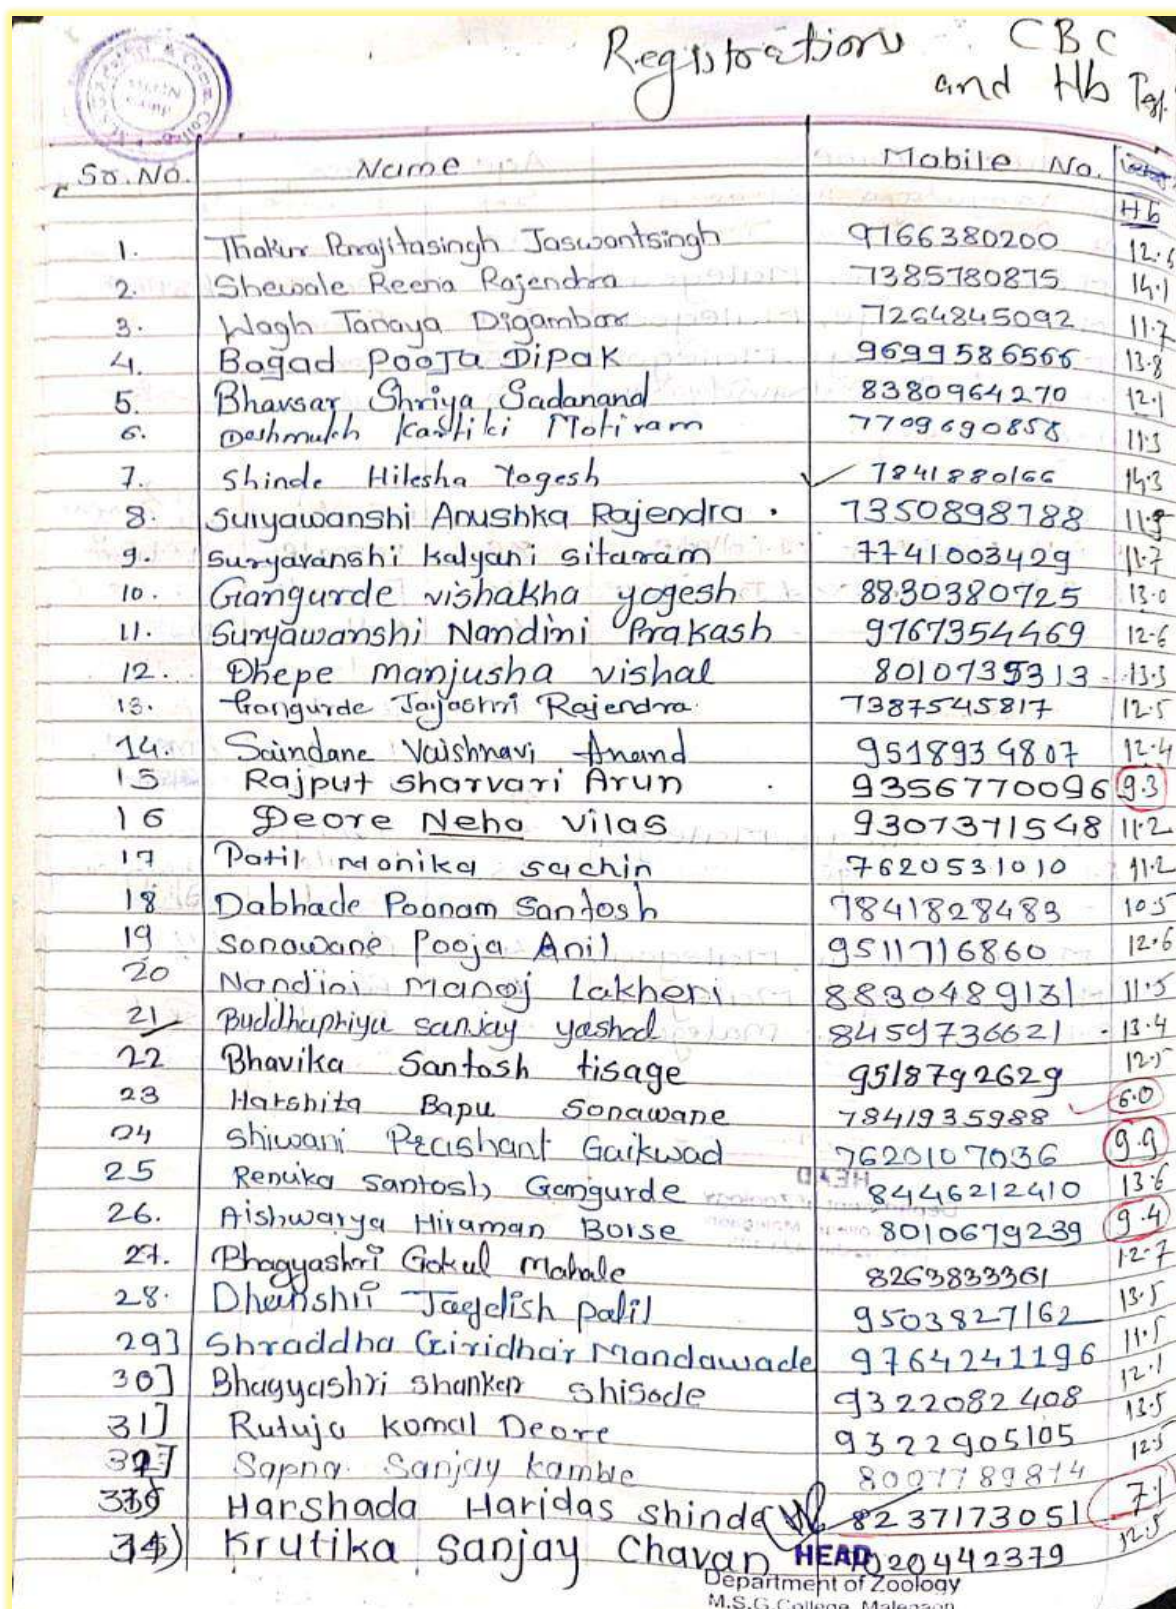 Registrations CBC
and Hb Test
Sr. No. Name Mobile No.
Hb
1. Thakur Jaswantsingh 9166380200
2. Shewale Reena Rajendra 7385780875 14.1
3. Wagh Tanaya Digambar 7264845092 11.7
4. Bagad Pooja Dipak 9699586566 13.8
5. Bhavsar Shriya Sadanand 8380964270 12.1
6. Deshmukh Motiram 7709690858 11.3
7. Shinde Hilesha Yogesh 7841880166 14.3
8. Suryawanshi Anushka Rajendra. 7350898788
9. Suryavanshi Kalyani sitaram 7741003429 11.7
10. Gangurde vishakha yogesh 8830380725 13.0
11. Suryawanshi Nandini Prakash 9767354469 12.6
12. Dhepe manjusha vishal 8010735313 13.3
13. Gangurde Jayashri Rajendra. 7387545817 12.5
14. Saindane Vaishnavi Anand 9518934807 12.4
15 Rajput sharvari Arun 9356770096 9.3
16 Deore Neha vilas 9307371548 11.2
17 Patil monika sachin 7620531010 11.2
18 Dabhade Poonam Santosh 7841828483 10.5
19 sonawane Pooja Anil 9511716860 12.6
20 Nandini Manoj Lakheri 8830489131 11.5
21 Buddhapriya sanjay yashod 8459736621 13.4
22 Bhavika Santosh tisage 9518792629 12.5
23 Harshita Bapu Sonawane 7841935988 6.0
24 Shiwani Prashant Gaikwad 7620107036 9.9
25 Renuka santosh Gangurde 8446212410 13.6
26. Aishwarya Hiraman Borse 8010679239 9.4
27. Bhagyashri Gokul Mahale 8263833361 12.7
28. Dhanshri Jagdish patil 9503827162 13.5
29] Shraddha Giridhar Mandawade 9764241196 11.5
30] Bhagyashri shanker shisode 9322082408 12.1
31] Rutuja komal Deore 9322905105 13.5
32] Sapna Sanjay kamble 12.5
33) Harshada Haridas shinde 8237173051 7.1
34) Krutika Sanjay Chavan 7020442379 12.5
HEAD
Department of Zoology
M.S.G. College, Malegaon